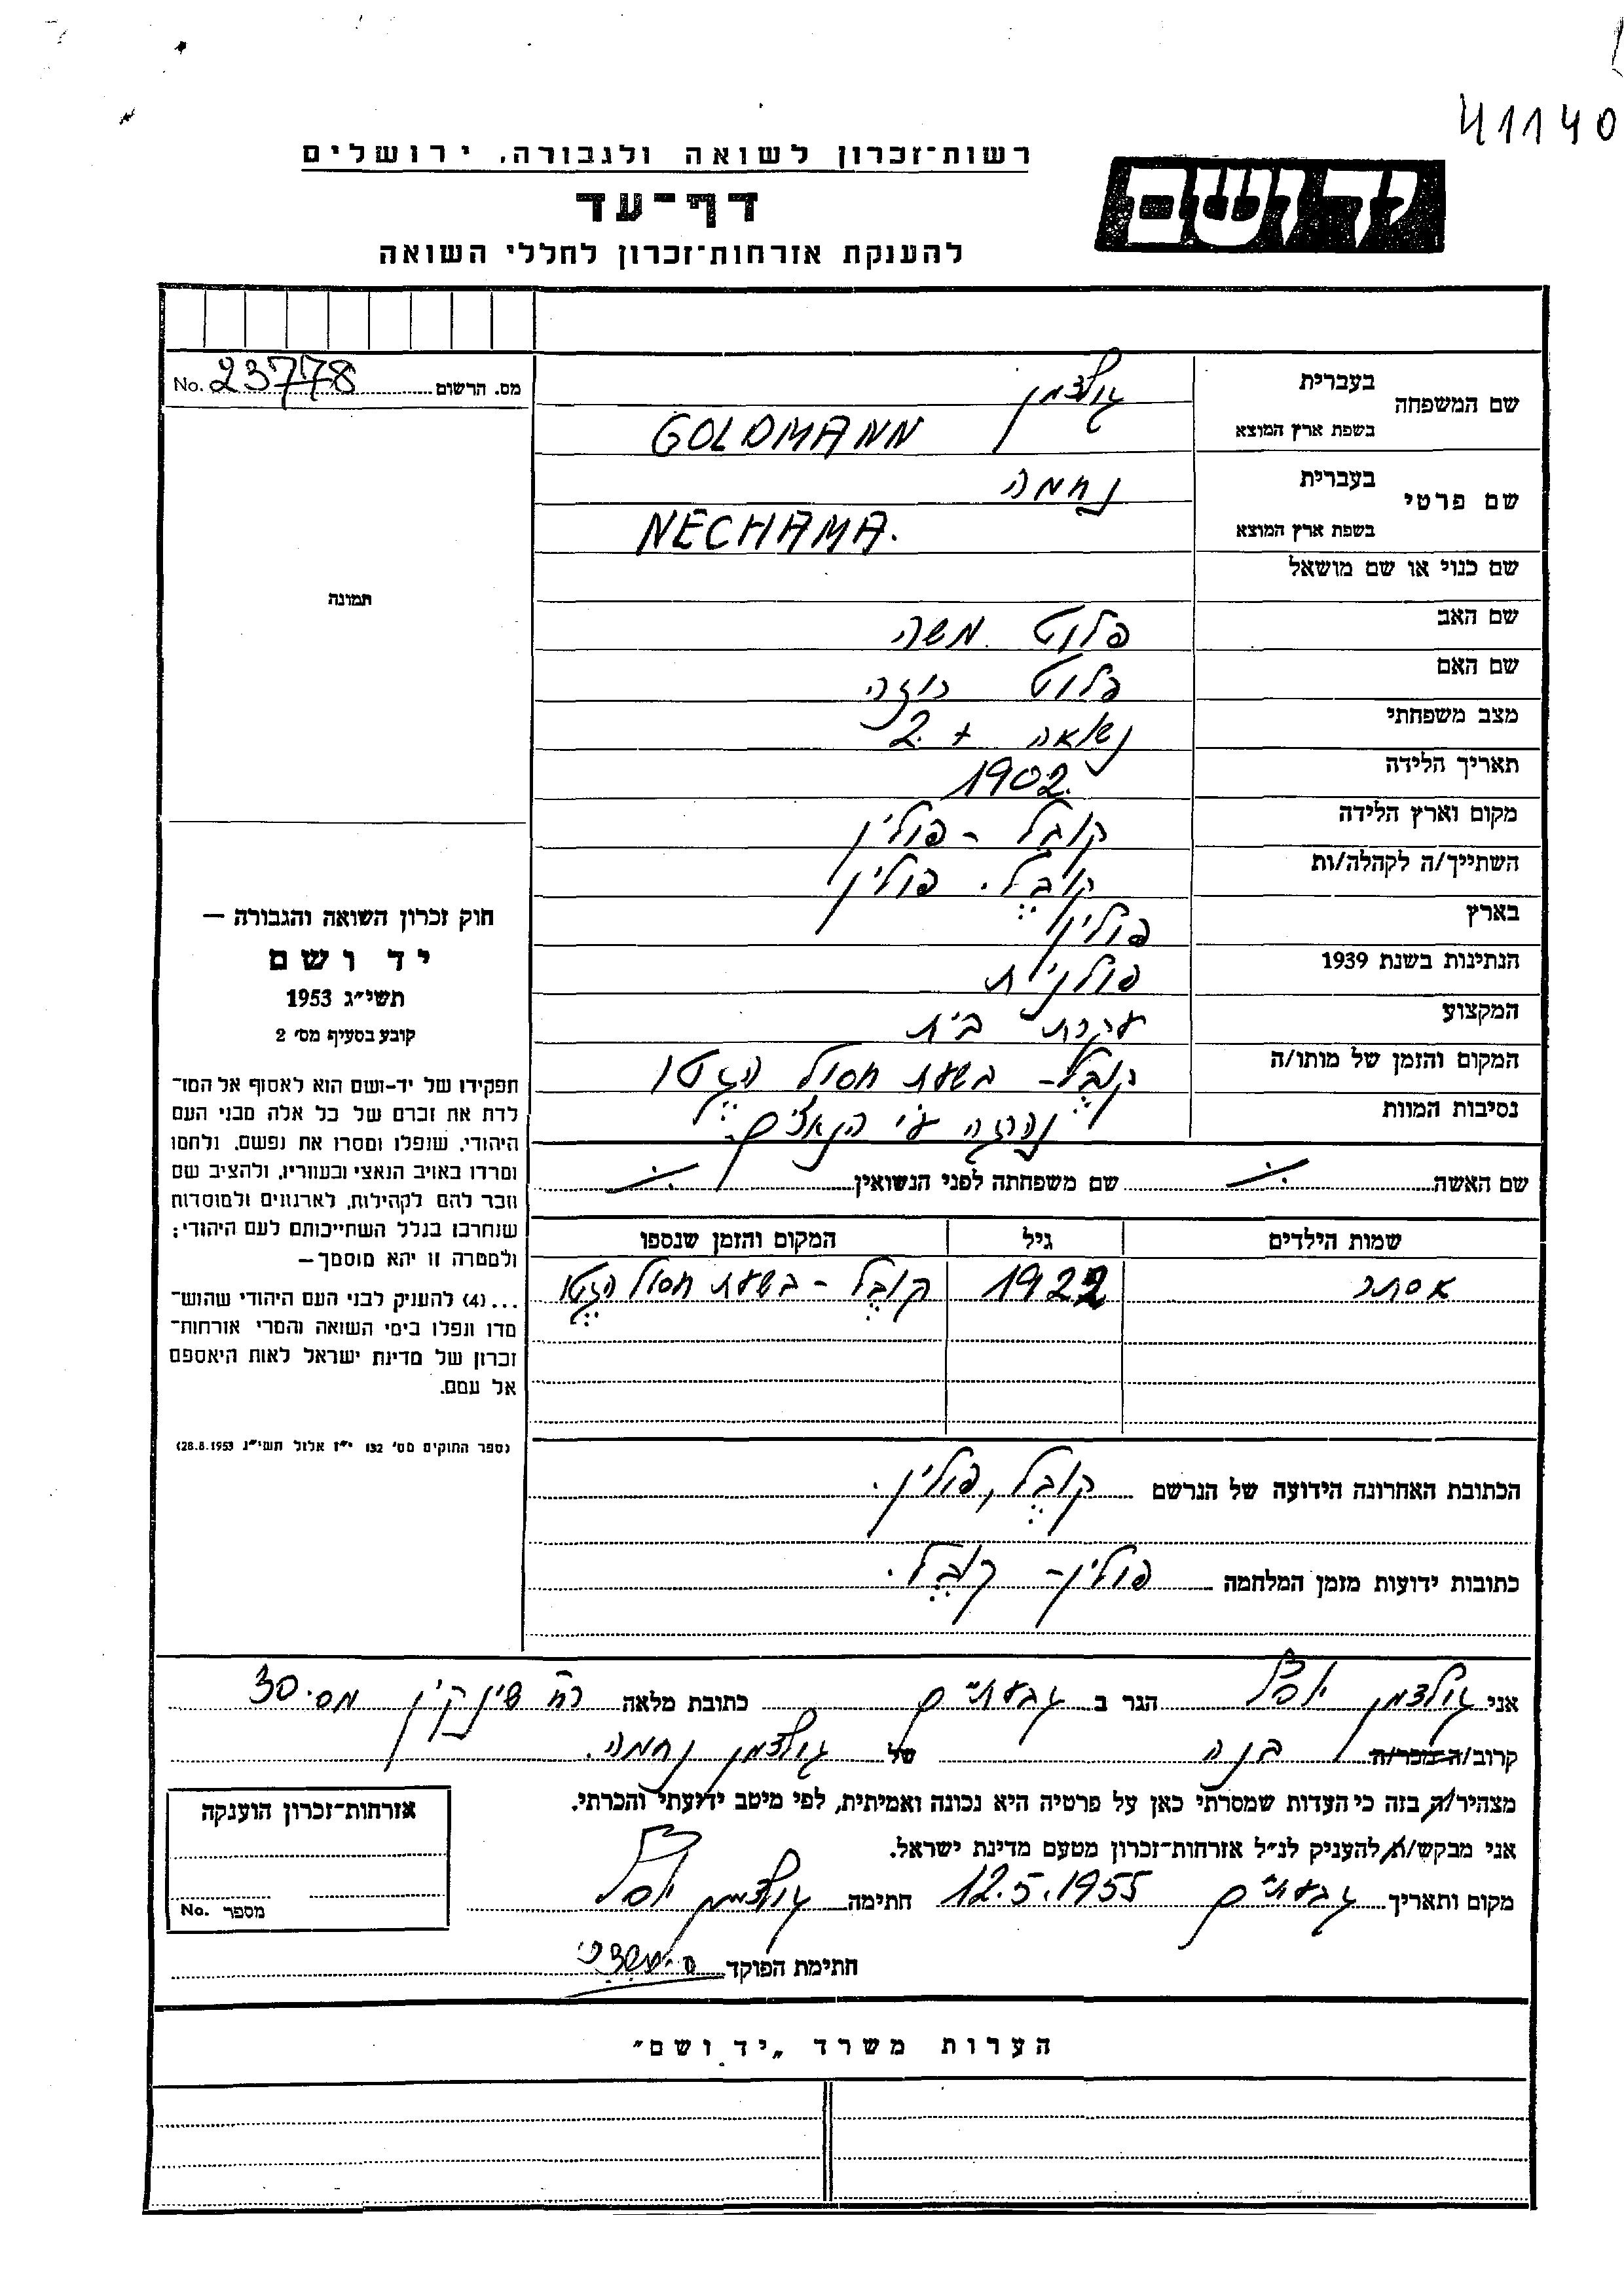 41140
רשות־זכרון לשואה ולגבורה, ירושלים
יד ושם
דף־עד
להענקת אזרחות־זכרון לחללי השואה
מס. הרשום 23778 No.
שם המשפחה
בעברית גולדמן
בשפת ארץ המוצא GOLDMANN
שם פרטי
בעברית נחמה
בשפת ארץ המוצא NECHAMA.
שם כנוי או שם מושאל
שם האב פלוט משה
שם האם פלוט רוזה
מצב משפחתי נשואה + 2.
תאריך הלידה 1902.
מקום וארץ הלידה קובל - פולין
השתייך/ה לקהלה/ות קובל. פולין
בארץ פולין
הנתינות בשנת 1939 פולנית
המקצוע עקרת בית
המקום והזמן של מותו/ה קובל - בשעת חסול הגטו
נסיבות המוות נהרגה ע"י הנאצים.
שם האשה ./. שם משפחתה לפני הנשואין ./.
שמות הילדים גיל המקום והזמן שנספו
אסתר 1922 קובל - בשעת חסול הגטו
הכתובת האחרונה הידועה של הנרשם קובל, פולין.
כתובות ידועות מזמן המלחמה פולין - קובל.
תמונה
חוק זכרון השואה והגבורה —
יד ושם
תשי״ג 1953
קובע בסעיף מס׳ 2
תפקידו של יד-ושם הוא לאסוף אל המו־
לדת את זכרם של כל אלה מבני העם
היהודי, שנפלו ומסרו את נפשם, נלחמו
ומרדו באויב הנאצי ובעוזריו, ולהציב שם
וזכר להם לקהילות, לארגונים ולמוסדות
שנחרבו בגלל השתייכותם לעם היהודי;
ולמטרה זו יהא מוסמך—
...(4) להעניק לבני העם היהודי שהוש־
מדו ונפלו בימי השואה והמרי אזרחות־
זכרון של מדינת ישראל לאות היאספם
אל עמם.
(ספר החוקים מס׳ 132 י״ז אלול תשי״ג 28.8.1953)
אני גולדמן הגר ב גבעתיים כתובת מלאה רח' שינקין מס. 30
קרוב/ה מכר/ה בנה של גולדמן נחמה.
מצהיר/ה בזה כי העדות שמסרתי כאן על פרטיה היא נכונה ואמיתית, לפי מיטב ידיעתי והכרתי.
אני מבקש/ת להעניק לנ״ל אזרחות־זכרון מטעם מדינת ישראל.
מקום ותאריך גבעתיים 12.5.1955 חתימה גולדמן
חתימת הפוקד
אזרחות־זכרון הוענקה
מספר No.
הערות משרד „יד ושם״